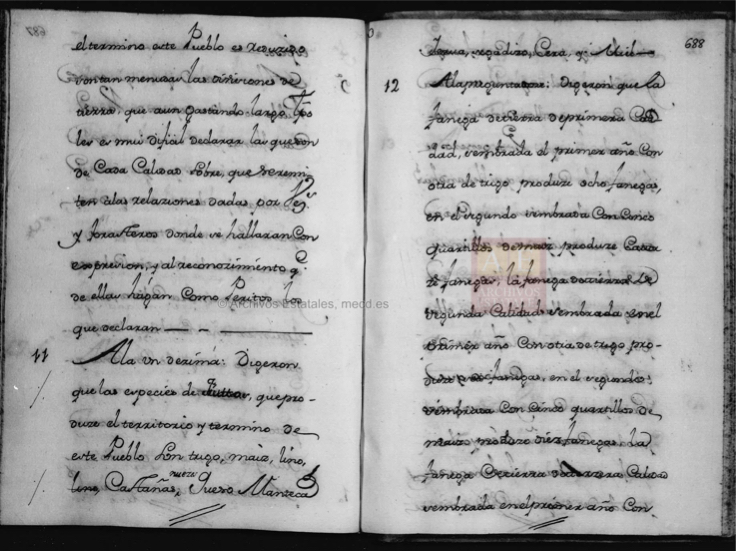 687
el termino deste Pueblo es reduzido
y son tan menudas las divisiones de
tierra, que aun gastando largo tpo
les es mui dificil declarar las que son
de Cada Calidad sobre, que se remi-
ten alas relaziones dadas por
y forasteros donde se hallaran Con
expresion, y al reconozimiento q.e
de ellas hagan Como Peritos los
que declaran
11 Ala undezima: Digeron
que las especies de fruttos, que pro-
duze el territorio y termino de
este Pueblo son trigo, maiz, lino,
lino, Castañas, nuezes, Queso Manteca
688
regadizo, Cera, y Miel
12 Ala pregunta doze: Digeron que la
fanega de tierra de primera Cali
dad, sembrada el primer año Con
otra de trigo produze ocho fanegas,
en el segundo sembrada Con Cinco
quartillos de maiz produze Cator
ze fanegas; la fanega de tierra de
segunda Calidad sembrada en el
primer año Con otra de trigo, pro-
duze fanegas, en el segundo
sembrada Con Cinco quartillos de
maiz produze diez fanegas. La
fanega de tierra de terzera Calidad
sembrada en el primer año Con
© Archivos Estatales, mecd.es